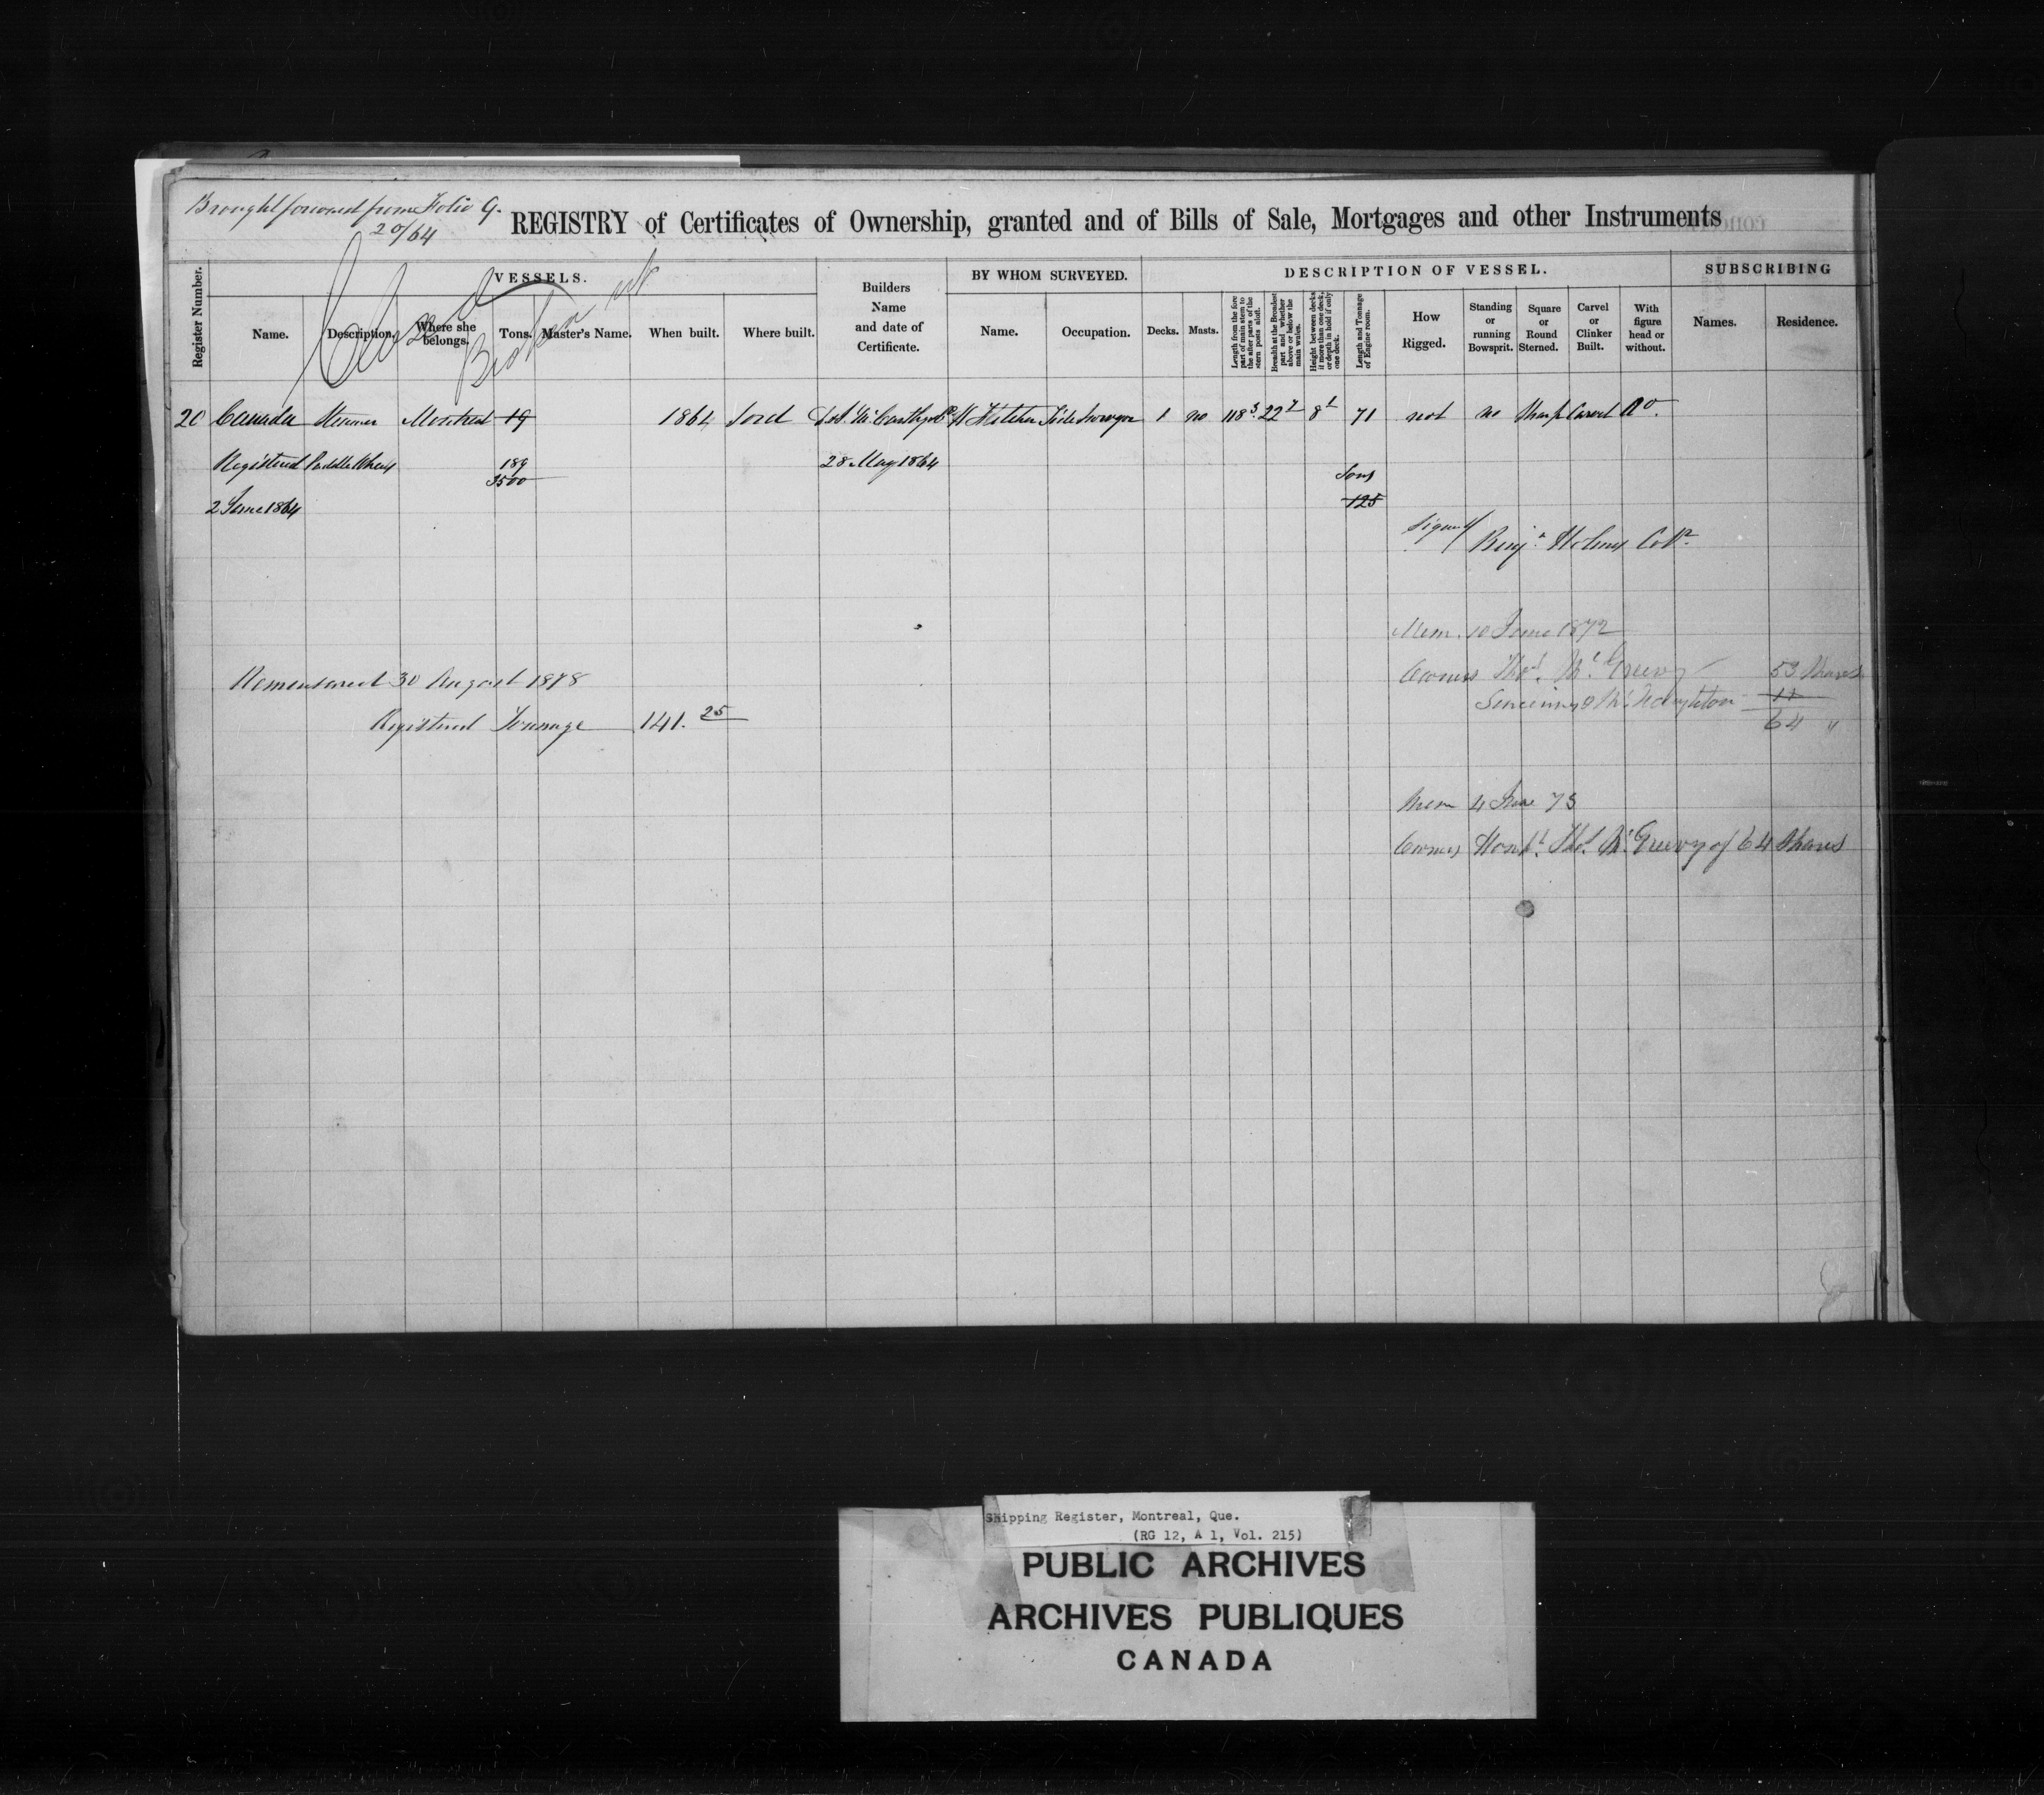 Brought forward from Folio G.
20/64
REGISTRY of Certificates of Ownership, granted and of Bills of Sale, Mortgages and other Instruments
Closed
Broken up
Register Number.
VESSELS.
Name.
Description.
Where she belongs.
Tons.
Master's Name.
When built.
Where built.
Builders Name and date of Certificate.
BY WHOM SURVEYED.
Name.
Occupation.
DESCRIPTION OF VESSEL.
Decks.
Masts.
Length from the fore part of main stem to the after parts of the stern posts aloft.
Breadth at the Broadest part and whether above or below the main wales.
Height between decks if more than one deck, or depth in hold if only one deck.
Length and Tonnage of Engine room.
How Rigged.
Standing or running Bowsprit.
Square or Round Sterned.
Carvel or Clinker Built.
With figure head or without.
SUBSCRIBING
Names.
Residence.
20 Canada Steamer Montreal 19 1864 Sorel McCarthy 1 no 118 3 22 7 8 1 71 not no Sharp Carvel No.
Registered Paddle Wheel 189 28 May 1864 Tons
3500
2 June 1864 125
Signed/ Benjn Holmes Collr
Mem. 10 June 1872
Owners Thos. McGreevy 53 Shares
McNaughton 11
64 "
Remeasured 30 August 1878
Registered Tonnage 141.25
Mem 4 June 73
Owner Honbl. Thos. McGreevy of 64 Shares
Shipping Register, Montreal, Que.
(RG 12, A 1, Vol. 215)
PUBLIC ARCHIVES
ARCHIVES PUBLIQUES
CANADA